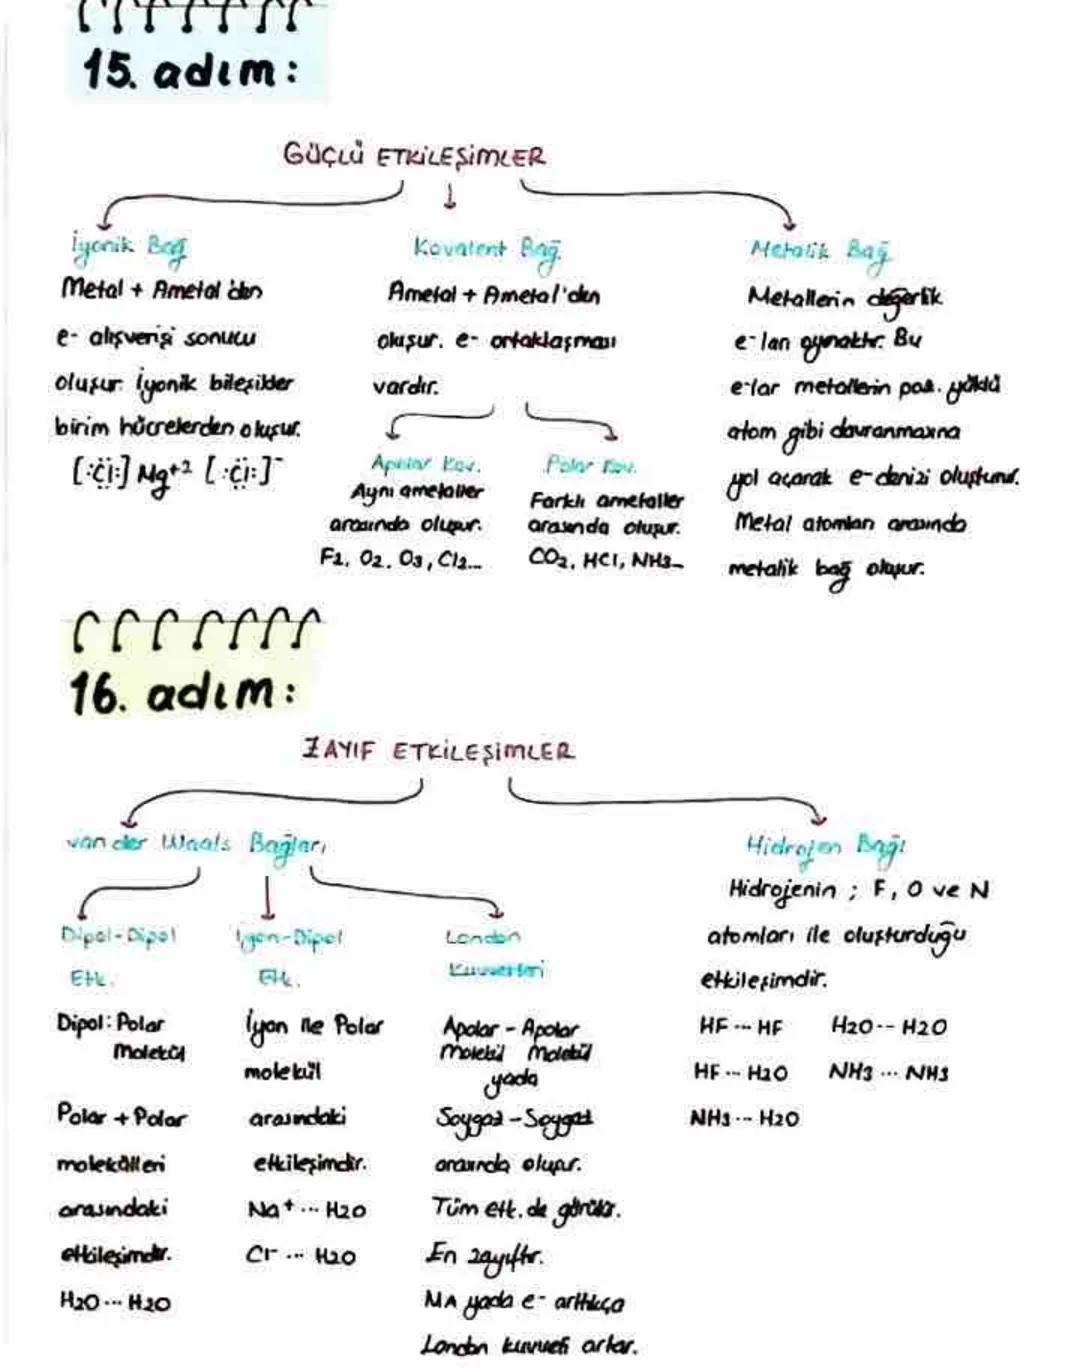 15. adım:
GÜÇLÜ ETKİLEŞİMLER
İyonik Bağ
Metal + Ametal'den
e- alışverişi sonucu
oluşur. İyonik bileşikler
birim hücrelerden oluşur.
[:Cl:] Mg+2 [:Cl:]-
Kovalent Bağ
Ametal + Ametal'den
oluşur. e- ortaklaşması
vardır.
Apolar Kov.
Aynı ametaller
arasında oluşur.
F2, O2, O3, Cl2...
Polar Kov.
Farklı ametaller
arasında oluşur.
CO2, HCl, NH3...
Metalik Bağ
Metallerin değerlik
e-ları oynaktır. Bu
e-lar metallerin poz. yüklü
atom gibi davranmasına
yol açarak e- denizi oluşturur.
Metal atomları arasında
metalik bağ oluşur.
16. adım:
ZAYIF ETKİLEŞİMLER
van der Waals Bağları
Dipol-Dipol
Etk.
Dipol: Polar
Molekül
Polar + Polar
molekülleri
arasındaki
etkileşimdir.
H2O ... H2O
İyon-Dipol
Etk.
İyon ile Polar
molekül
arasındaki
etkileşimdir.
Na+ ... H2O
Cl- ... H2O
London
Kuvvetleri
Apolar - Apolar
Molekül Molekül
yada
Soygaz - Soygaz
arasında oluşur.
Tüm etk. de görülür.
En zayıftır.
MA yada e- arttıkça
London kuvveti artar.
Hidrojen Bağı
Hidrojenin ; F, O ve N
atomları ile oluşturduğu
etkileşimdir.
HF --- HF H2O -- H2O
HF --- H2O NH3 ... NH3
NH3 --- H2O